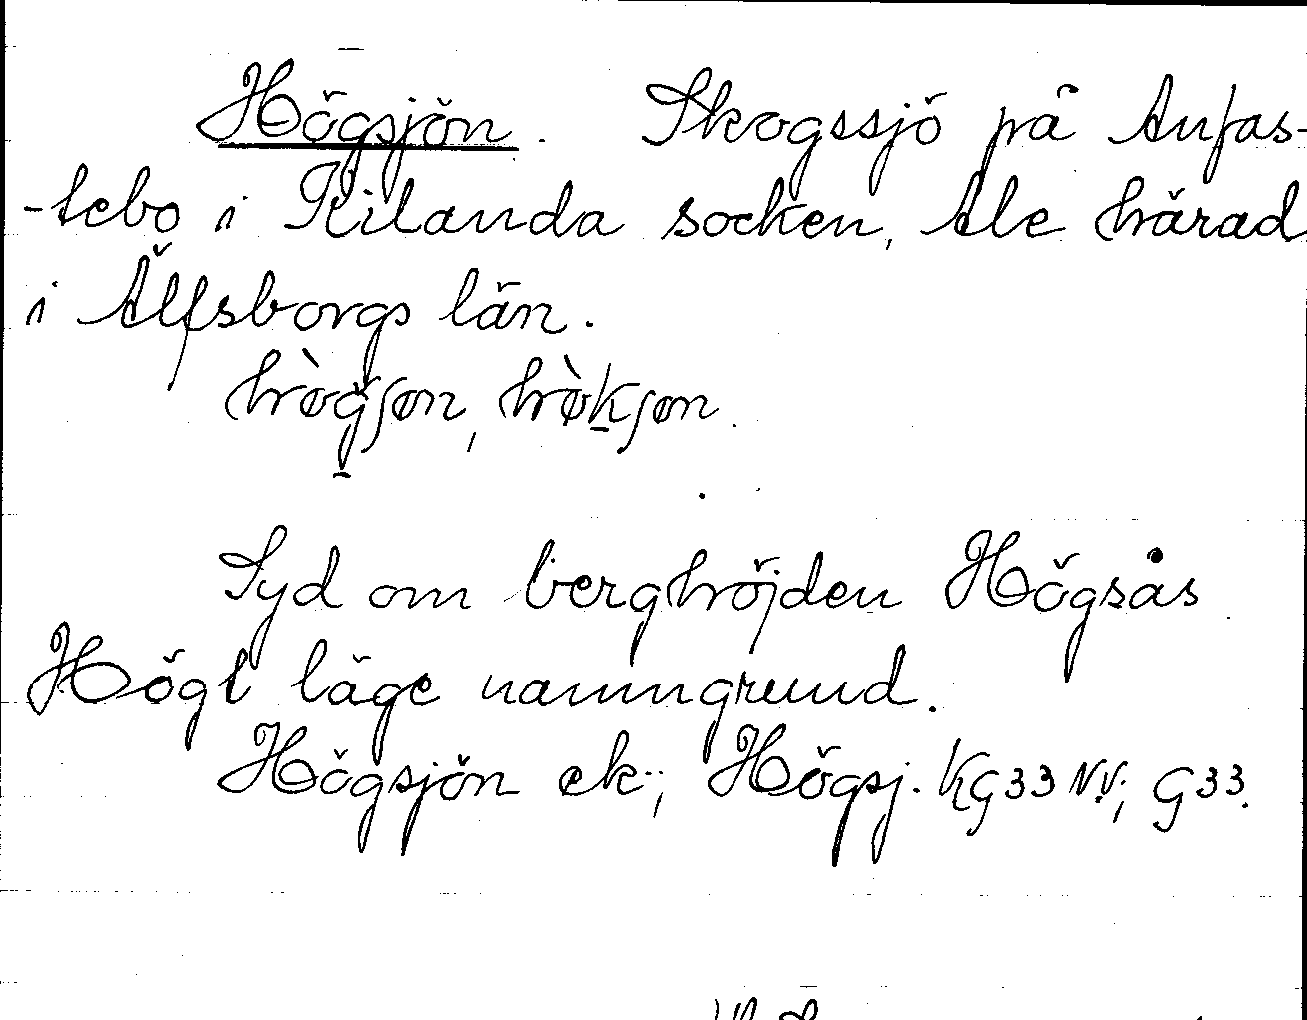 Högsjön. Skogssjö på Anfas-
-tebo i Kilanda socken, Ale härad
i Älfsborgs län.
hògʃøn, hø̀kʃøn.
Syd om berghöjden Högsås
Högt läge namngrund.
Högsjön ek.; Högsj. KG33 NV.; G33.